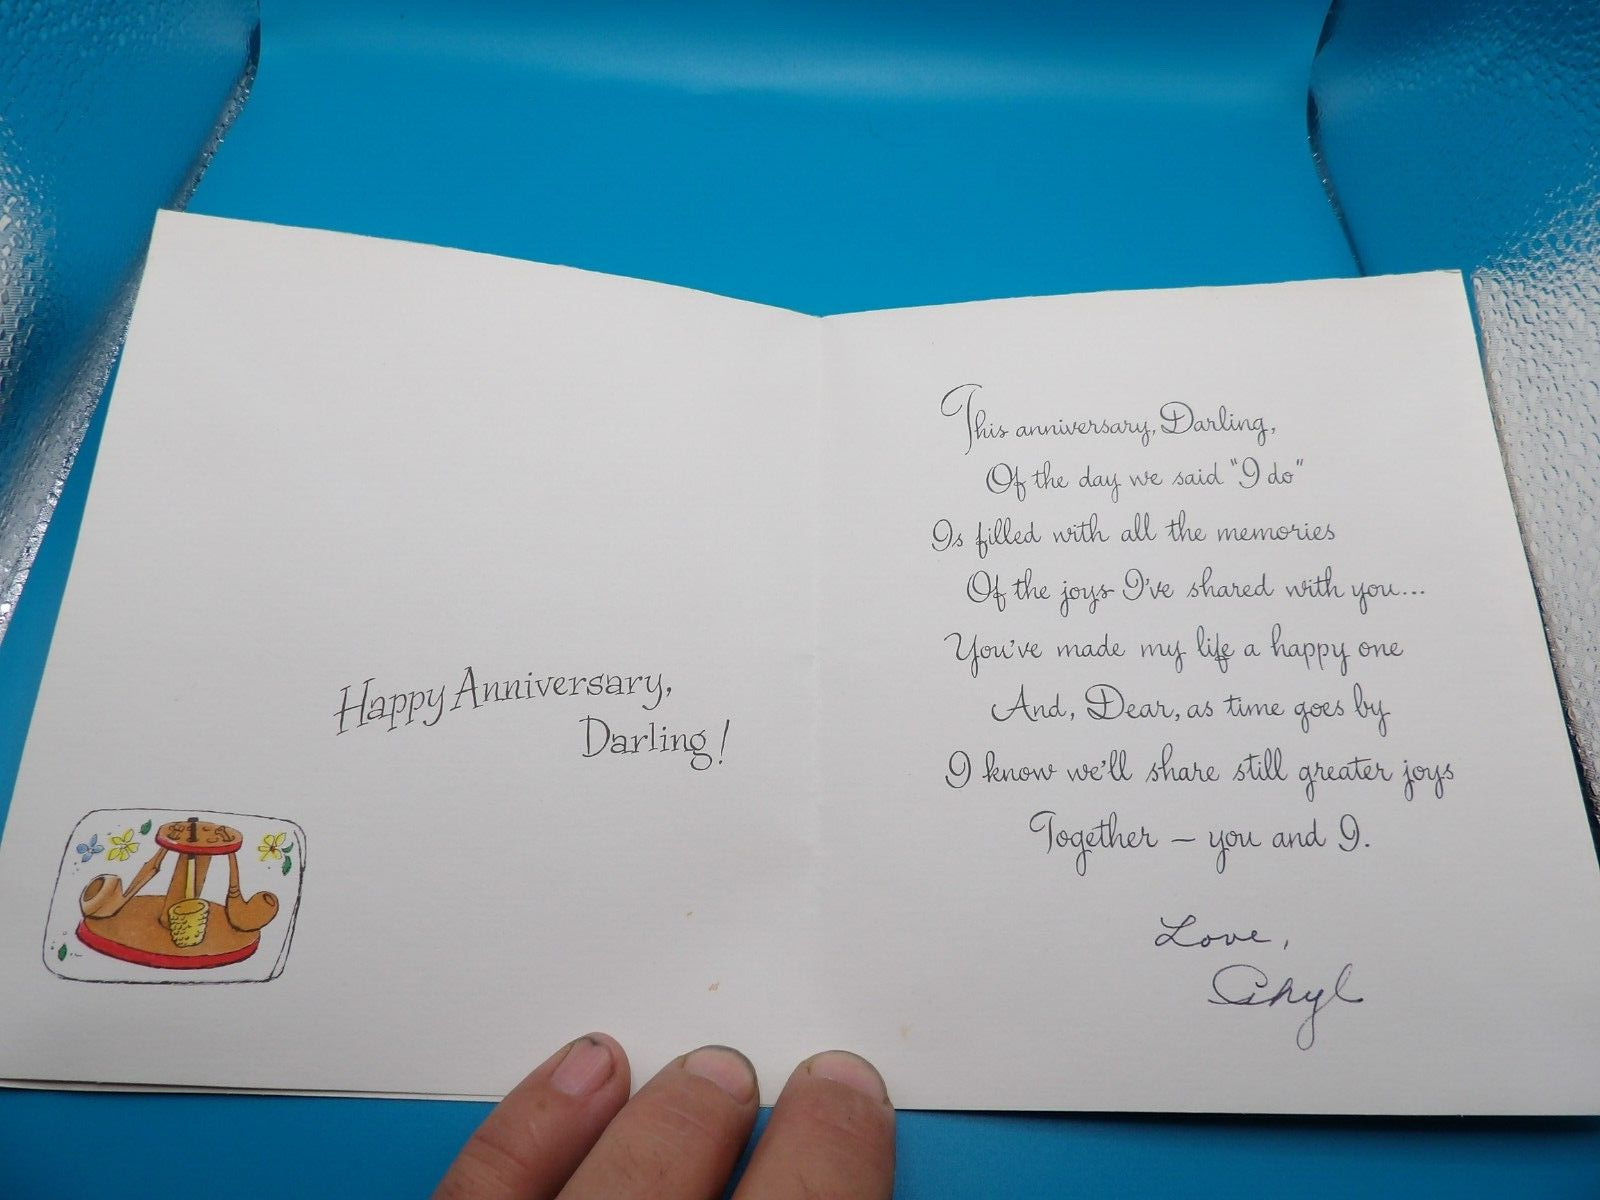 Happy Anniversary,
Darling!
This anniversary, Darling,
Of the day we said "I do"
Is filled with all the memories
Of the joys I've shared with you...
You've made my life a happy one
And, Dear, as time goes by
I know we'll share still greater joys
Together — you and I.
Love,